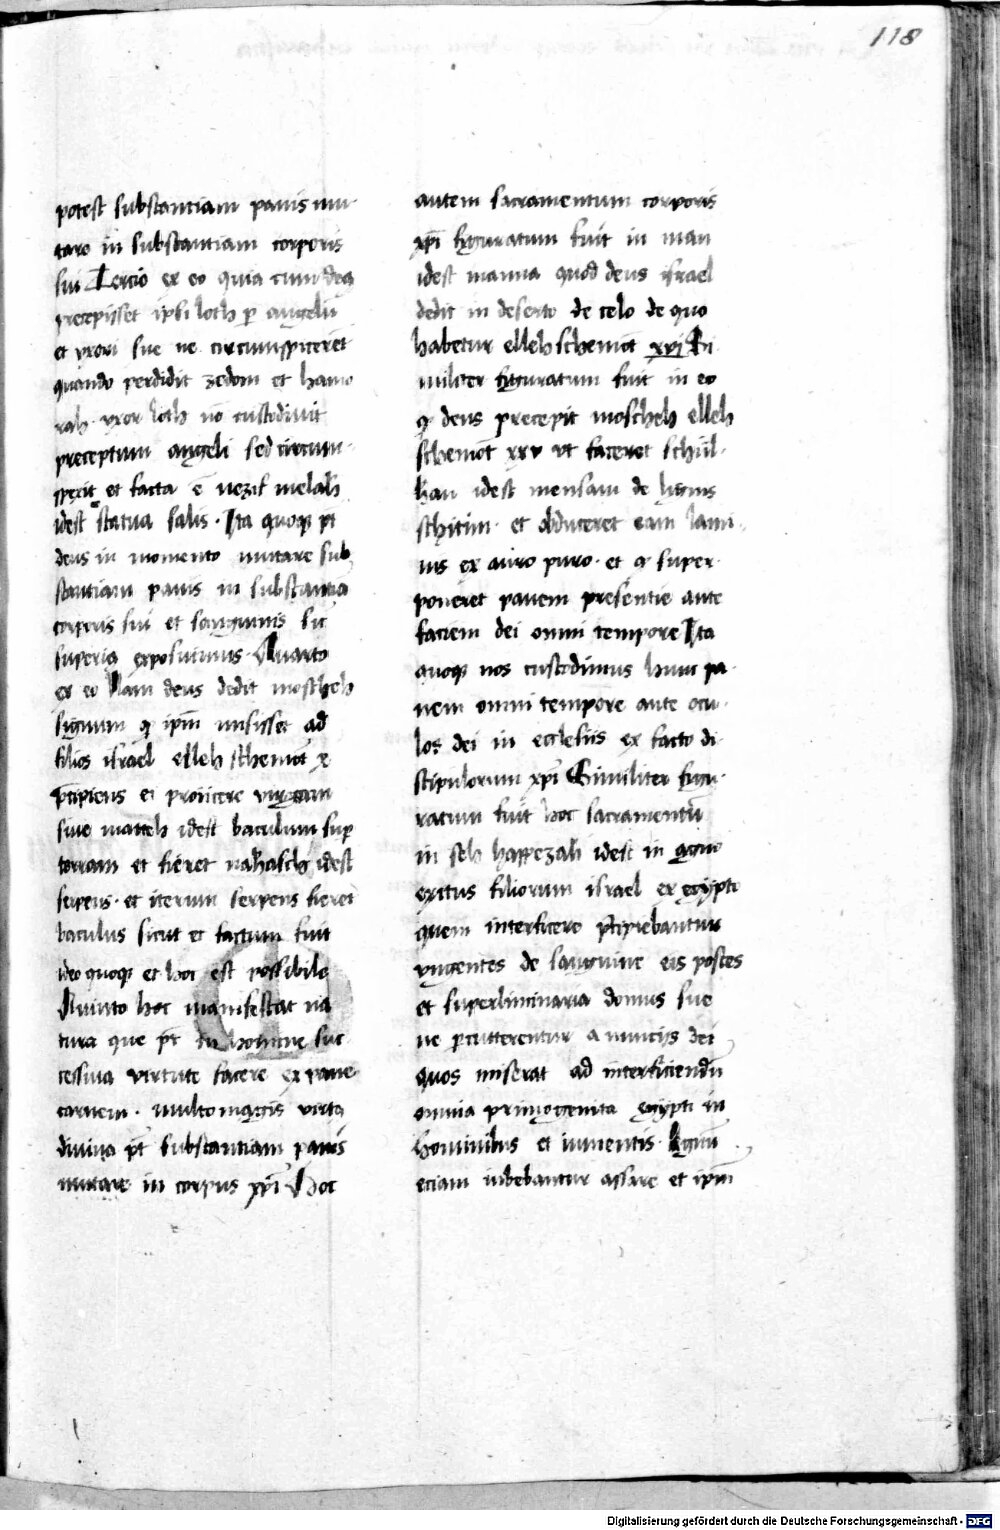 118
potest substantiam panis mu-
tare in substantiam corporis
sui Tercio ex eo quia cum deus
precepisset ipsi loth per angelū
et uxori sue ne circumspicerēt
quando perdidit zedom et hamo
rah uxor loth nō custodivit
preceptum angeli sed circum-
spexit et facta ē nezif melaḣ
idest statua salis. Ita quoque pt
deus in momento mutare sub
stantiam panis in substantiā
corporis sui et sanguinis sic
superius exposuimus. Quarto
ex eo Nam deus dedit moscheh
signum quod ipm misisset ad
filios israel elleh schemot
pcipiens ei proiicere virgam
sive matteh idest baculum sup
terram et fieret naḣasch idest
serpens. et iterum serpens fieret
baculus sicut et factum fuit
ideo quoque et hoc est possibile
Quinto hoc manifestat na
tura que pt in homine suc-
cessiva virtute facere ex pane
carnem. multo magis virtus
divina pt substantiam panis
mutare in corpus xpi Hoc
autem sacramentum corporis
xpi figuratum fuit in man
idest manna quod deus israel
dedit in deserto de celo de quo
habetur elleh schemot xvi Si-
militer figuratum fuit in eo
quod deus precepit moscheh elleh
schemot xxv ut faceret schul-
ḣan idest mensam de lignis
schitim. et obduceret eam lami-
nis ex auro puro. et quod super-
poneret panem presentie ante
faciem dei omni tempore Ita
quoque nos custodimus hunc pa-
nem omni tempore ante ocu-
los dei in ecclesiis ex facto di
scipulorum xpi Similiter figu-
ratum fuit hoc sacramentū
in seh happezaḣ idest in agno
exitus filiorum israel ex egypto
quem interficere pcipiebantur
ungentes de sanguine eis postes
et superliminaria domus sue
ne pcutterentur a nunciis dei
quos miserat ad interficiendū
omnia primogenita egypti in
hominibus et iumentis. Agnū
eciam iubebantur assare et ipm
Digitalisierung gefördert durch die Deutsche Forschungsgemeinschaft - DFG